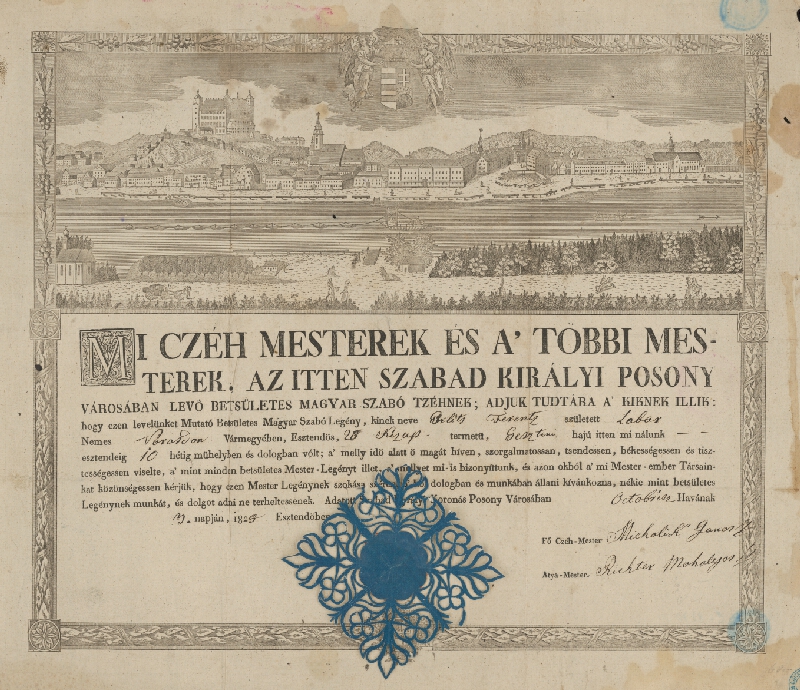 MI CZÉH MESTEREK ÉS A' TÖBBI MES-
TEREK, AZ ITTEN SZABAD KIRÁLYI POSONY
VÁROSÁBAN LEVŐ BETSÜLETES MAGYAR SZABÓ TZÉHNEK; ADJUK TUDTÁRA A' KIKNEK ILLIK:
hogy ezen levelünket Mutató Betsületes Magyar Szabó Legény, kinek neve Ferentz született
Nemes Vármegyében, Esztendős, 28 termetű, hajú itten mi nálunk – –
esztendeig 10 hétig műhelyben és dologban vólt; a' melly idő alatt ő magát híven, szorgalmatossan, tsendessen, békességessen és tisz-
tességessen viselte, a' mint minden betsületes Mester-Legényt illet, a' mellyet mi-is bizonyítunk, és azon okból a' mi Mester-ember Társain-
kat közönségessen kérjük, hogy ezen Mester Legénynek szokás dologban és munkában állani kívánkozna, nékie mint betsületes
Legénynek munkát, és dolgot adni ne terheltessenek. Adatott Szabad Királyi Koronás Posony Városában Octobris Havának
napján, Esztendőben
Fő Czéh-Mester Michalik Janos
Atya-Mester. Richter Mohalyos